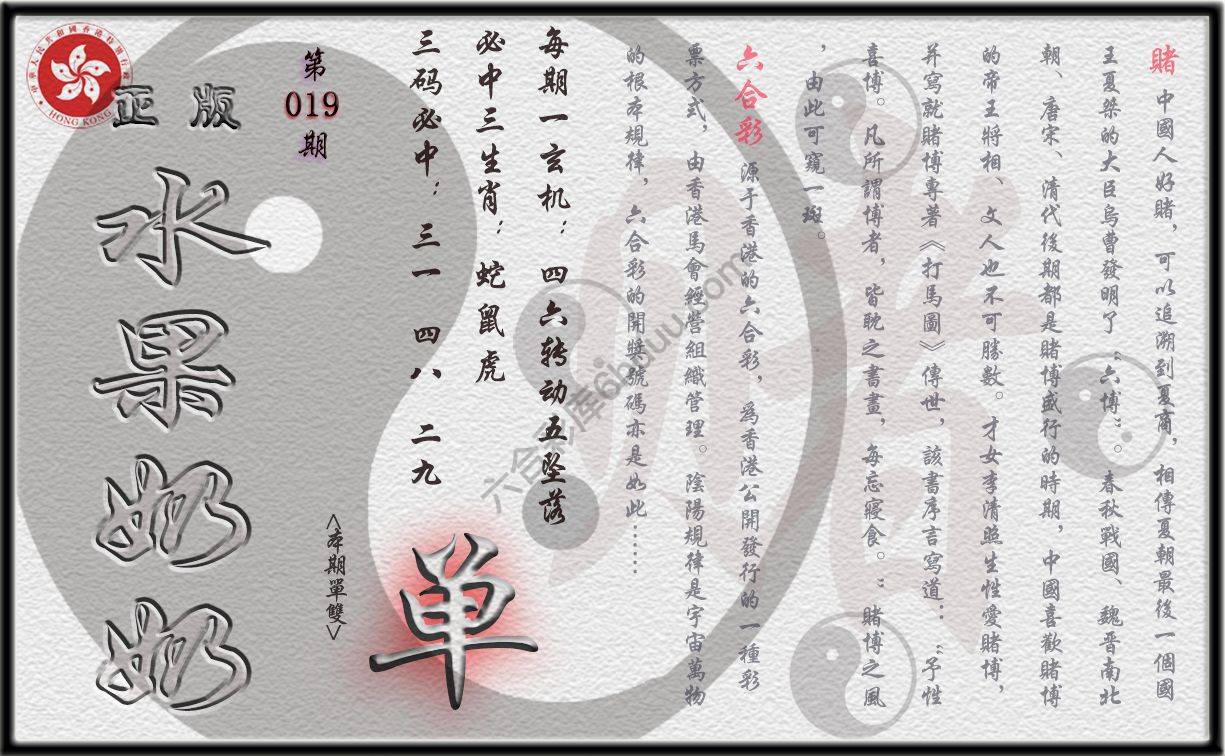 賭 中國人好賭，可以追溯到夏商，相傳夏朝最後一個國
王夏桀的大臣烏曹發明了“六博”。春秋戰國、魏晉南北
朝、唐宋、清代後期都是賭博盛行的時期，中國喜歡賭博
的帝王將相、文人也不可勝數。才女李清照生性愛賭博，
并寫就賭博專著《打馬圖》傳世，該書序言寫道：“予性
喜博。凡所謂博者，皆耽之書畫，每忘寢食。”賭博之風
，由此可窺一斑。
六合彩 源于香港的六合彩，爲香港公開發行的一種彩
票方式，由香港馬會經營組織管理。陰陽規律是宇宙萬物
的根本規律，六合彩的開獎號碼亦是如此……
每期一玄机：四六转动五坠落
必中三生肖：蛇鼠虎
三码必中：三一 四八 二九
单
<本期單雙>
第
019
期
正版
水果奶奶
HONG KONG